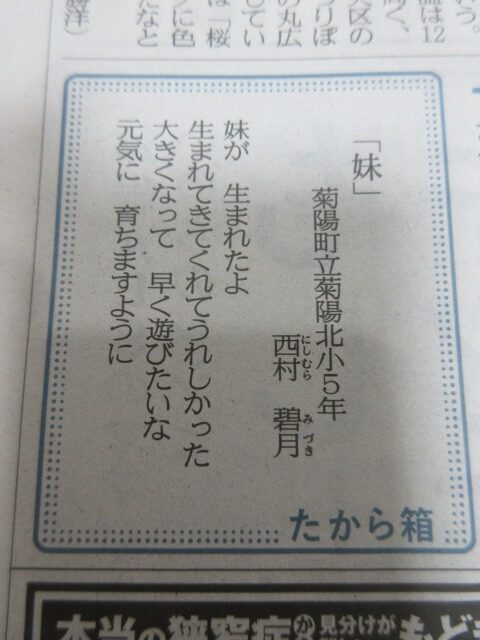 「妹」
菊陽町立菊陽北小5年
西村 碧月
にしむら みづき
妹が 生まれたよ
生まれてきてくれてうれしかった
大きくなって 早く遊びたいな
元気に 育ちますように
たから箱
本当の狭窄症
か
見分けが